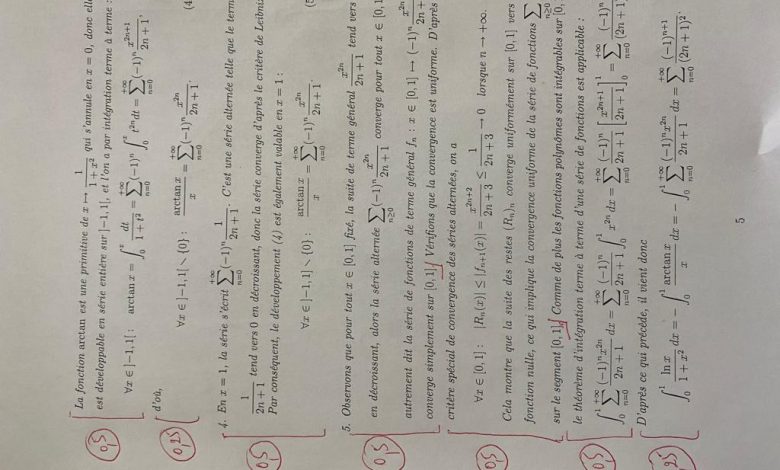 La fonction arctan est une primitive de x ↦ 1/(1 + x²) qui s'annule en x = 0, donc elle
est développable en série entière sur ]−1, 1[, et l'on a par intégration terme à terme :
∀x ∈ ]−1, 1[ : arctan x = ∫₀ˣ dt/(1 + t²) = ∑_{n=0}^{+∞} (−1)ⁿ ∫₀ˣ t²ⁿ dt = ∑_{n=0}^{+∞} (−1)ⁿ x²ⁿ⁺¹/(2n + 1),
0,5
d'où,
∀x ∈ ]−1, 1[ ∖ {0} : arctan x / x = ∑_{n=0}^{+∞} (−1)ⁿ x²ⁿ/(2n + 1). (4
0,25
4. En x = 1, la série s'écrit ∑_{n=0}^{+∞} (−1)ⁿ 1/(2n + 1). C'est une série alternée telle que le terme
1/(2n + 1) tend vers 0 en décroissant, donc la série converge d'après le critère de Leibniz
Par conséquent, le développement (4) est également valable en x = 1 :
∀x ∈ ]−1, 1] ∖ {0} : arctan x / x = ∑_{n=0}^{+∞} (−1)ⁿ x²ⁿ/(2n + 1). (5
0,5
5. Observons que pour tout x ∈ [0, 1] fixé, la suite de terme général x²ⁿ/(2n + 1) tend vers
en décroissant, alors la série alternée ∑_{n≥0} (−1)ⁿ x²ⁿ/(2n + 1) converge pour tout x ∈ [0, 1
autrement dit la série de fonctions de terme général fₙ : x ∈ [0, 1] ↦ (−1)ⁿ x²ⁿ/(2n +
converge simplement sur [0, 1]. Vérifions que la convergence est uniforme. D'après
0,5
critère spécial de convergence des séries alternées, on a
∀x ∈ [0, 1] : |Rₙ(x)| ≤ |fₙ₊₁(x)| = x²ⁿ⁺²/(2n + 3) ≤ 1/(2n + 3) → 0 lorsque n → +∞.
Cela montre que la suite des restes (Rₙ)ₙ converge uniformément sur [0, 1] vers
fonction nulle, ce qui implique la convergence uniforme de la série de fonctions ∑_{n≥0}
0,5
sur le segment [0, 1]. Comme de plus les fonctions polynômes sont intégrables sur [0,
le théorème d'intégration terme à terme d'une série de fonctions est applicable :
∫₀¹ ∑_{n=0}^{+∞} (−1)ⁿx²ⁿ/(2n + 1) dx = ∑_{n=0}^{+∞} (−1)ⁿ/(2n + 1) ∫₀¹ x²ⁿ dx = ∑_{n=0}^{+∞} (−1)ⁿ/(2n + 1) [x²ⁿ⁺¹/(2n + 1)]₀¹ = ∑_{n=0}^{+∞} (−1)ⁿ/(2n + 1)
0,5
D'après ce qui précède, il vient donc
∫₀¹ ln x/(1 + x²) dx = − ∫₀¹ arctan x / x dx = − ∫₀¹ ∑_{n=0}^{+∞} (−1)ⁿx²ⁿ/(2n + 1) dx = ∑_{n=0}^{+∞} (−1)ⁿ⁺¹/(2n + 1)².
25
5